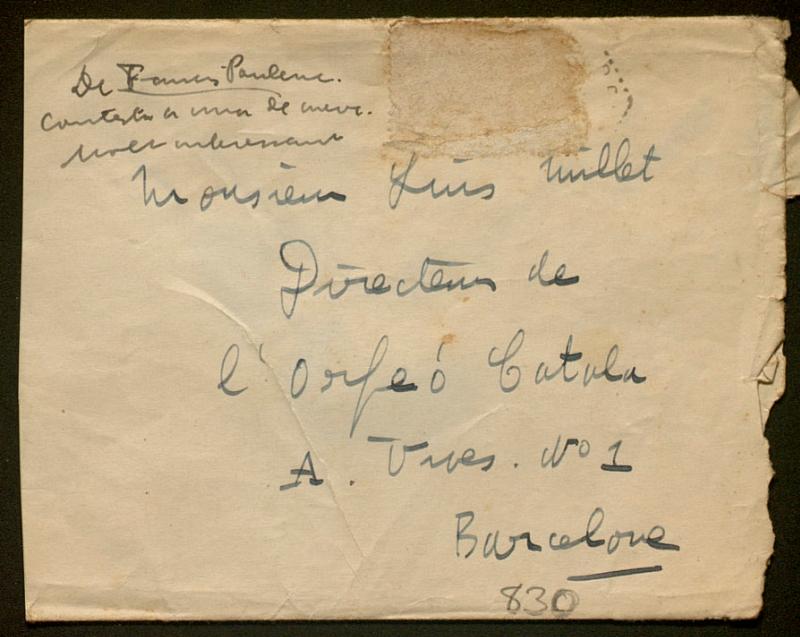 De Francis Poulenc.
Contesta a una de meva.
Molt interessant
Monsieur Luis Millet
Directeur de
l'Orfeó Catala
A. Vives. Nº 1
Barcelone
830